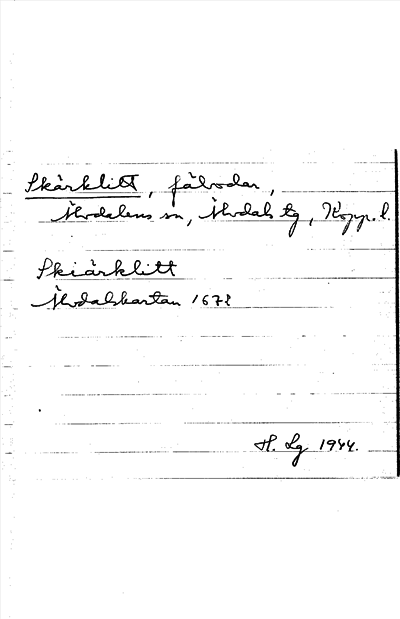 Skärklitt, fäbodar,
Älvdalens sn, Älvdals tg, Kopp. l.
Skiärklitt
Älvdalskartan 1672
H. Lg 1944.